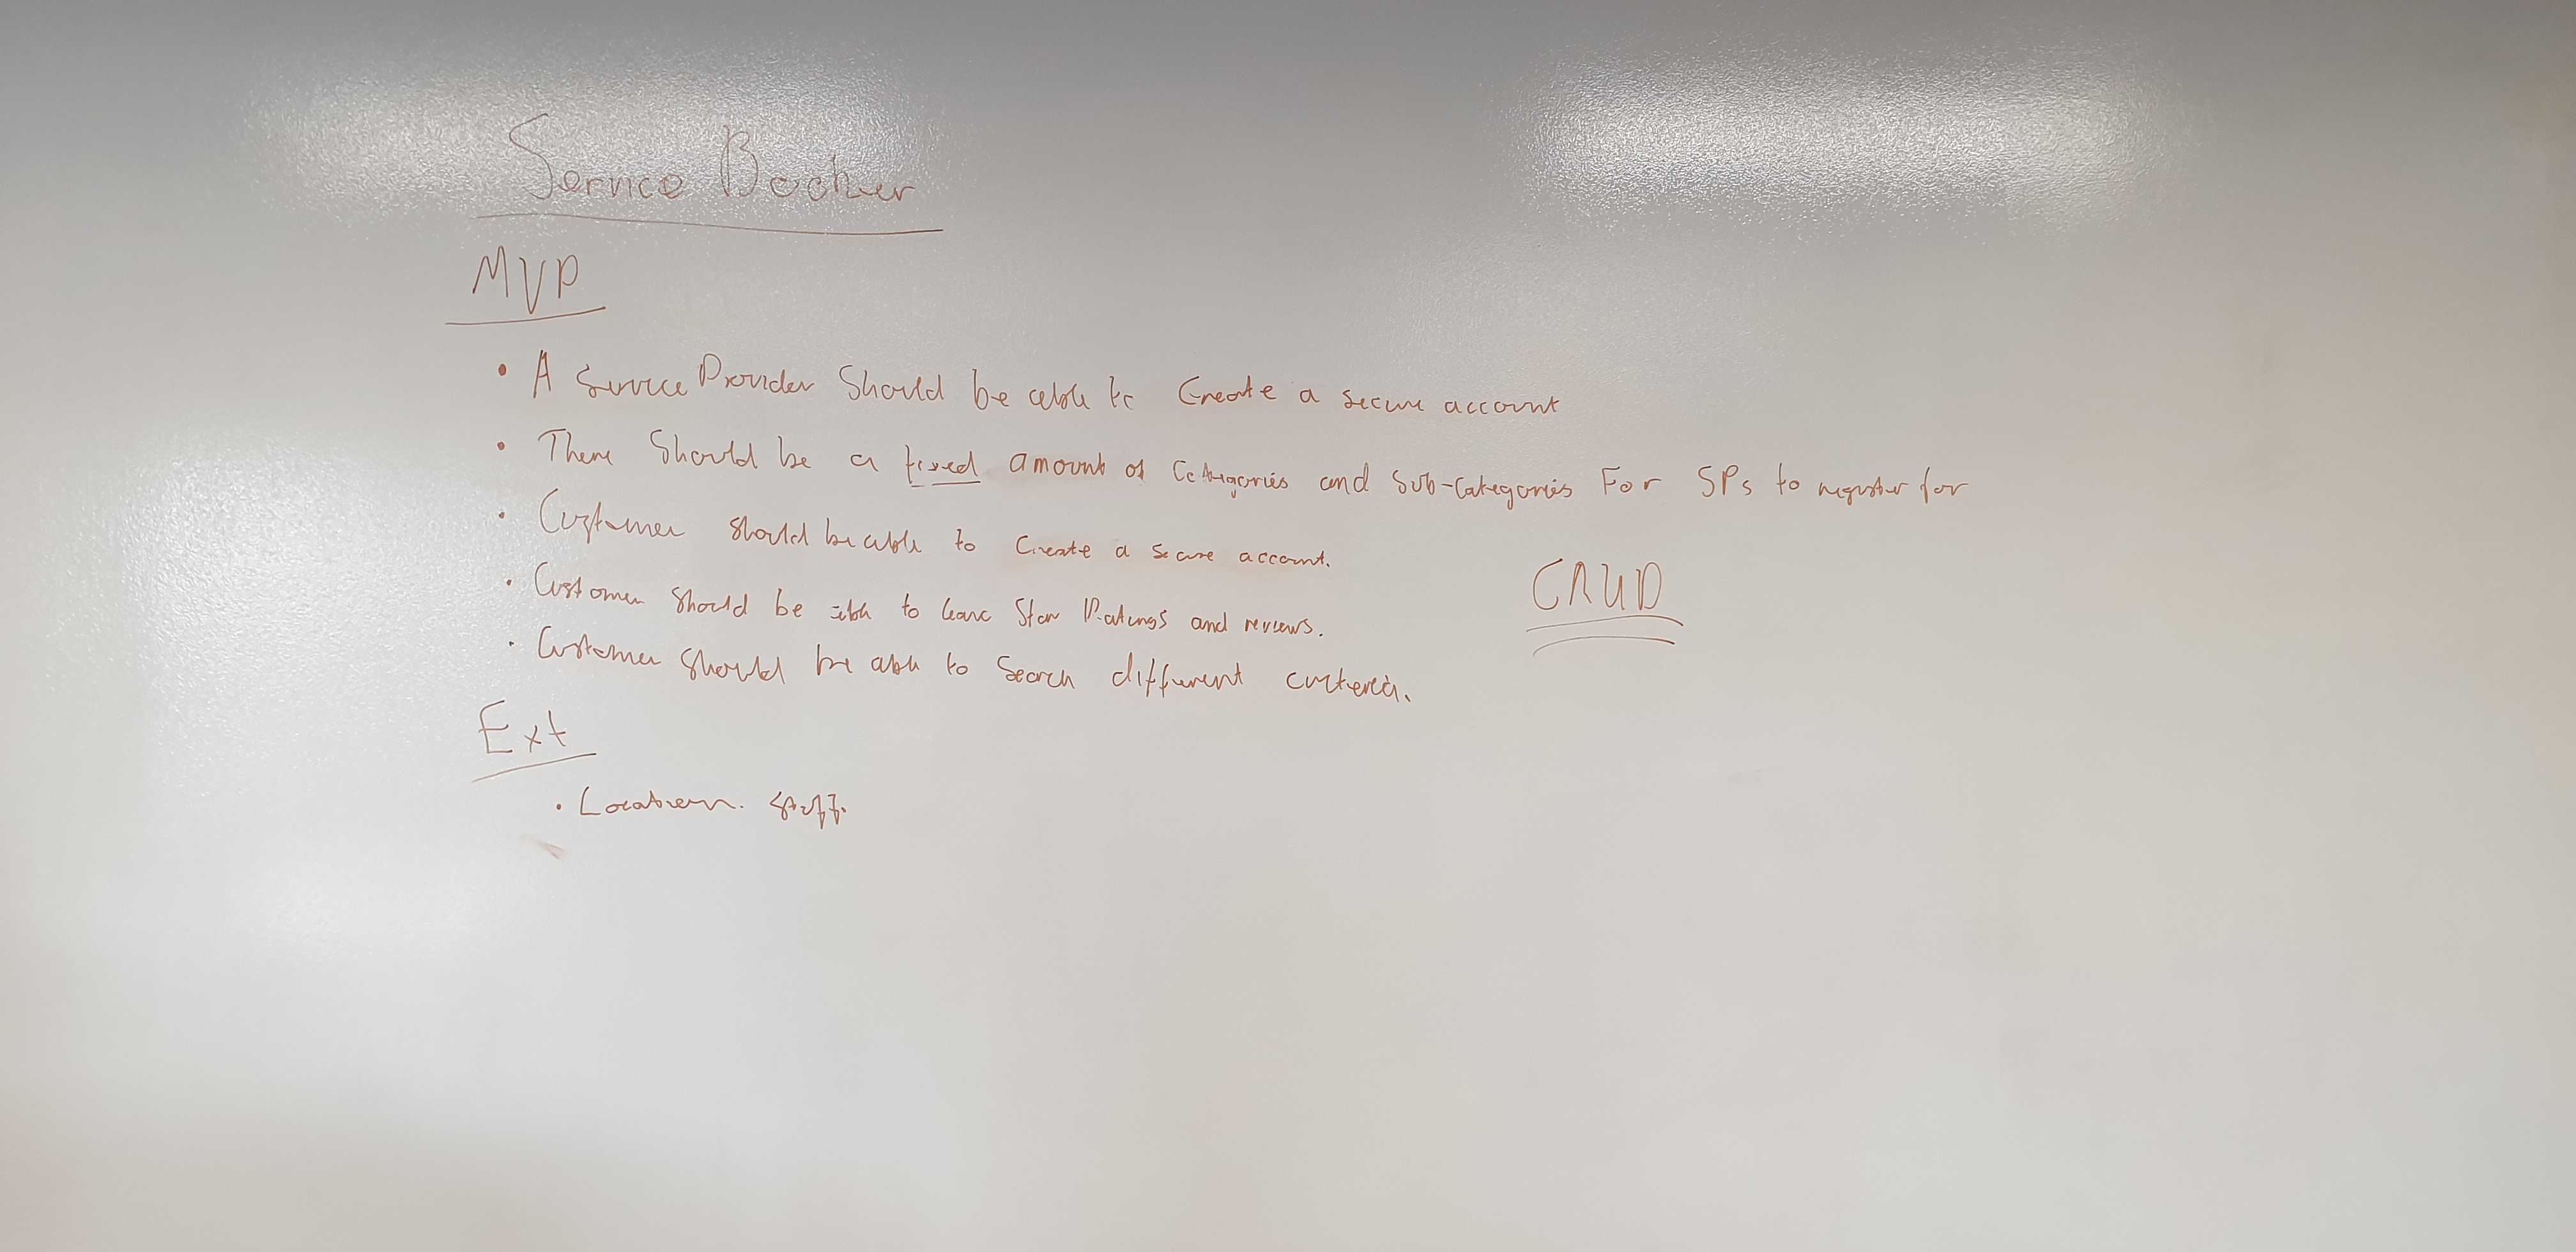 Service Booker
MVP
• A Service Provider Should be able to Create a secure account
• There Should be a fixed amount of Categories and Sub-Categories For SPs to register for
• Customer should be able to Create a secure account.
• Customer should be able to leave Star Ratings and reviews.
CRUD
• Customer should be able to Search different criteria.
Ext
• Location. Stuff.